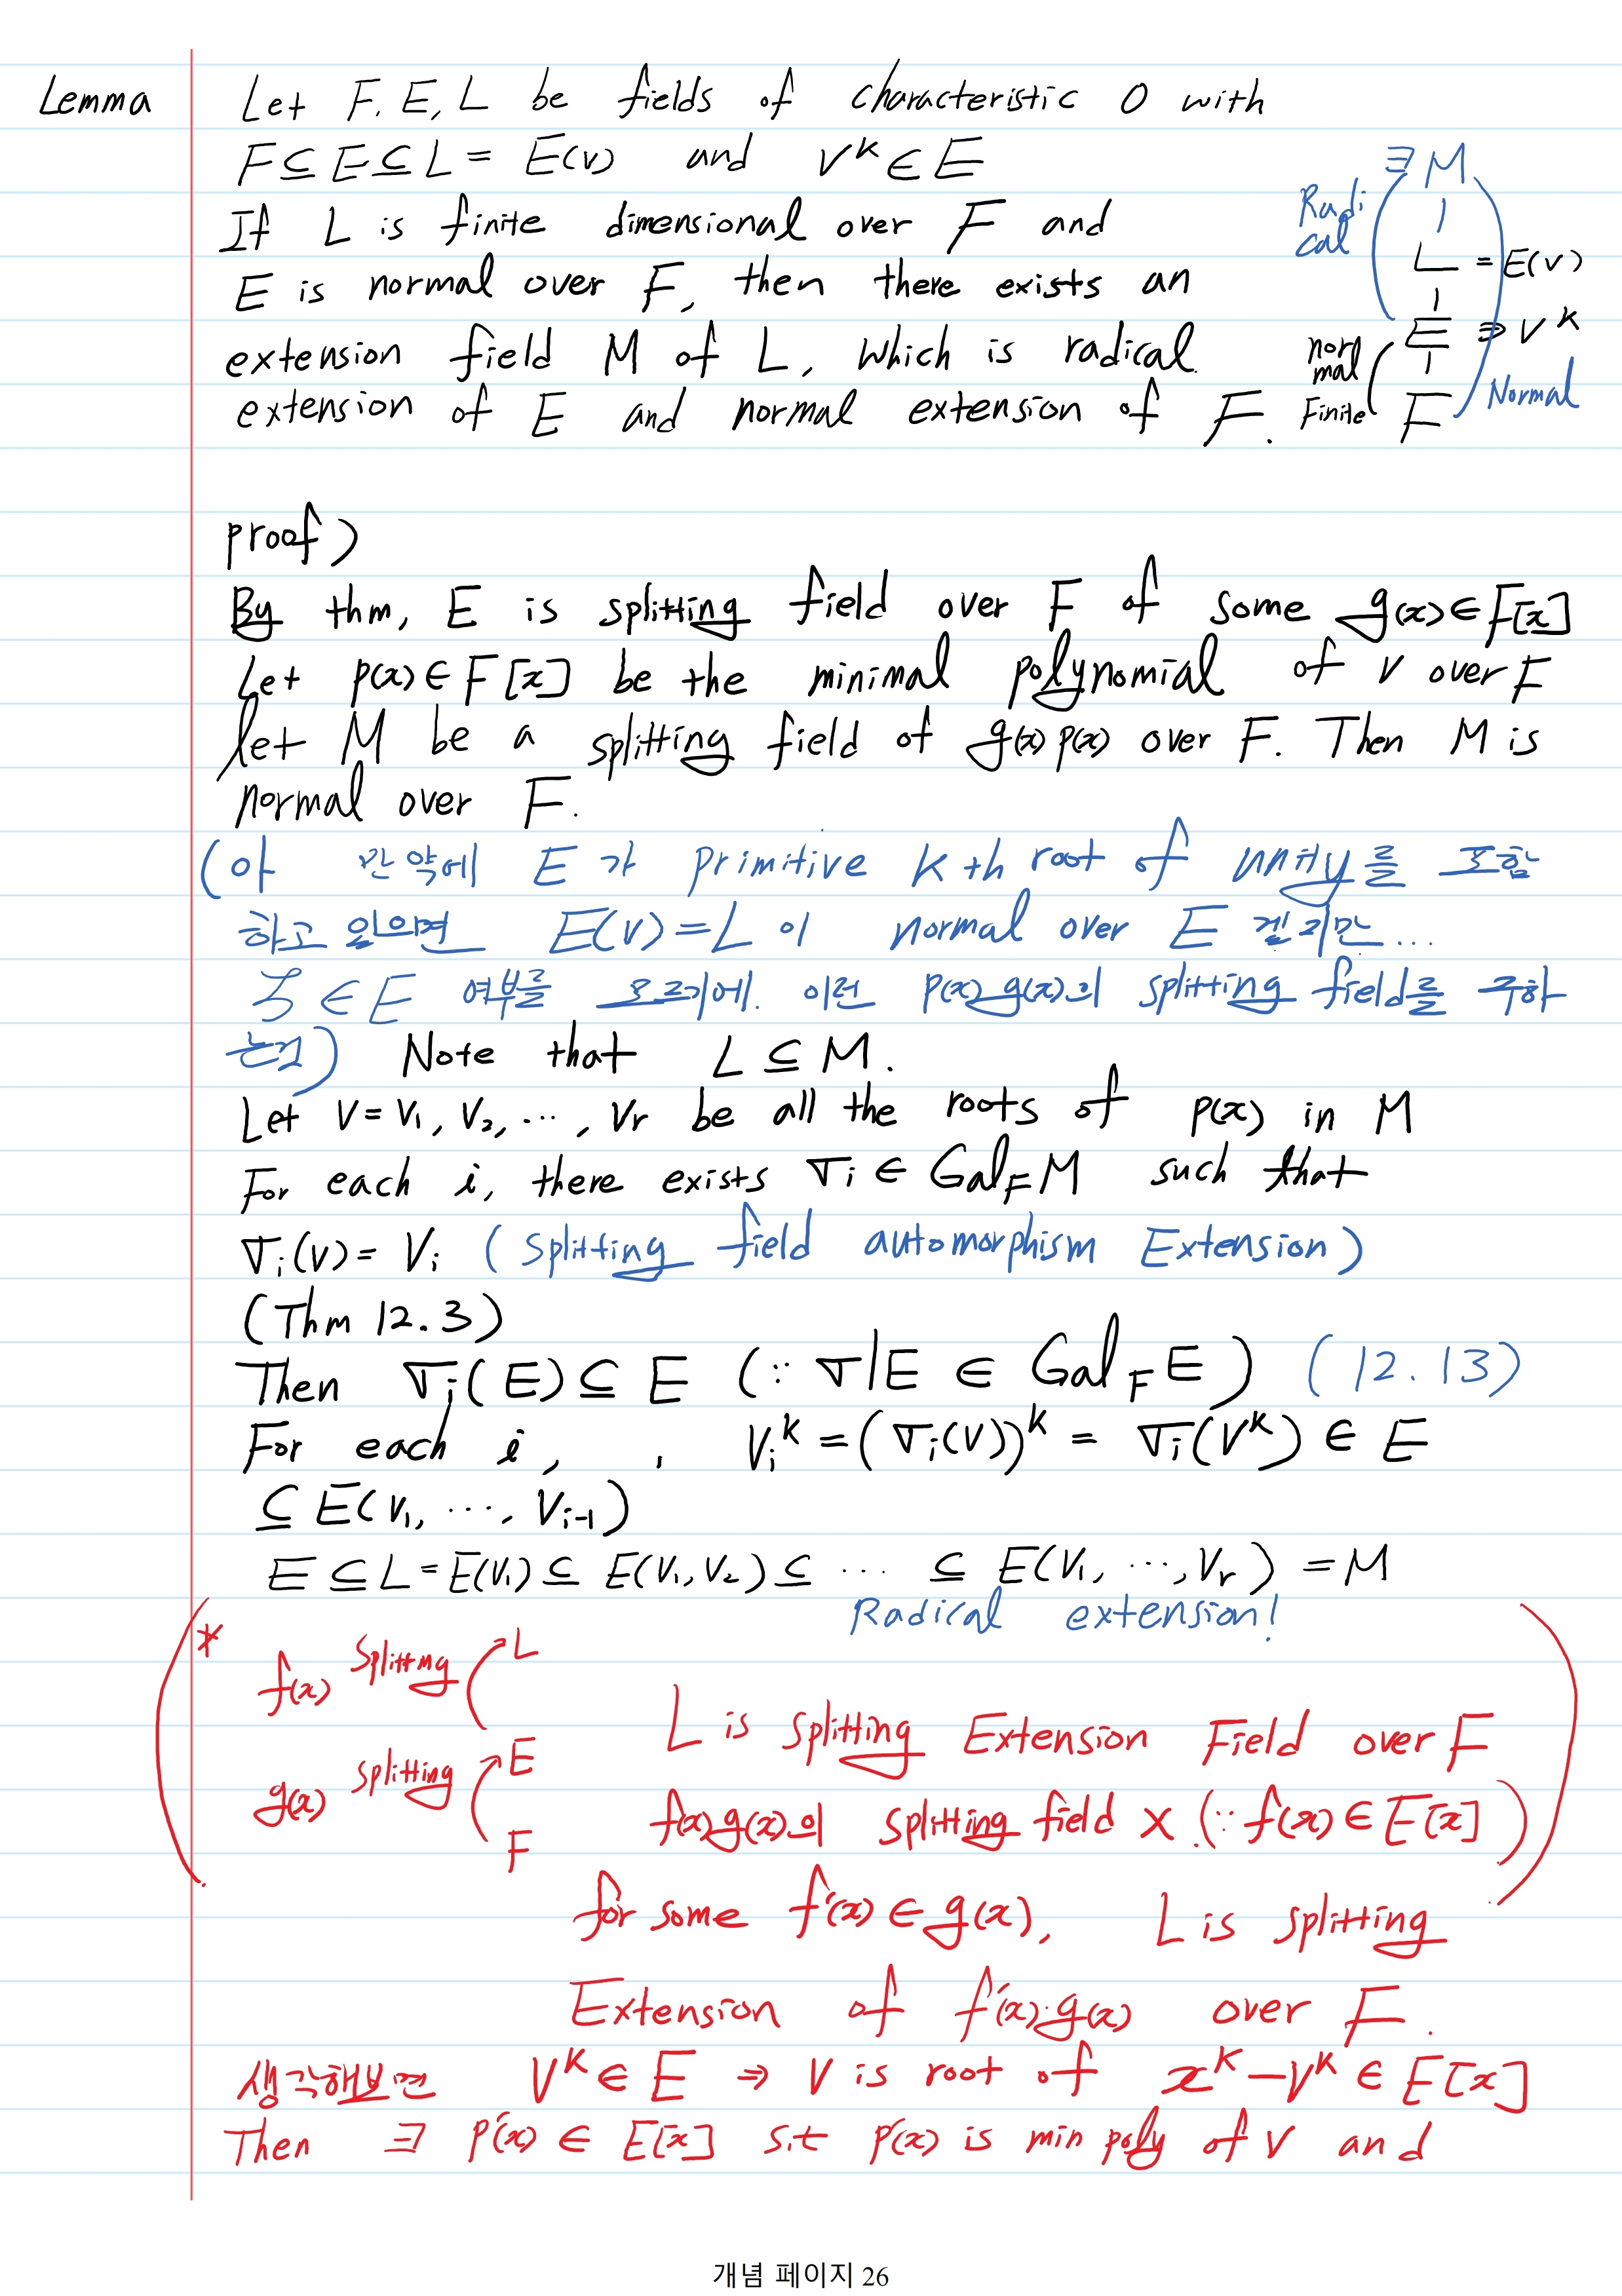 Lemma
Let F, E, L be fields of characteristic 0 with
F ⊆ E ⊆ L = E(v) and v^k ∈ E
If L is finite dimensional over F and
E is normal over F, then there exists an
extension field M of L, which is radical
extension of E and normal extension of F.
∃ M
Radi
cal
L = E(v)
E ∋ v^k
nor
mal
Finite
F
Normal
proof)
By thm, E is splitting field over F of some g(x) ∈ F[x]
Let p(x) ∈ F[x] be the minimal polynomial of v over F
let M be a splitting field of g(x)p(x) over F. Then M is
normal over F.
(아 만약에 E가 primitive k+h root of unity를 포함
하고 있으면 E(v)=L이 normal over E 겠지만...
ζ ∈ E 여부를 모르기에. 이런 p(x)g(x)의 splitting field를 구하
는것) Note that L ⊆ M.
Let v=v₁, v₂, ⋯, vr be all the roots of p(x) in M
For each i, there exists σi ∈ Gal_F M such that
σi(v) = vi (Splitting field automorphism Extension)
(Thm 12.3)
Then σi(E) ⊆ E (∵ σ|E ∈ Gal_F E) (12.13)
For each i, , vi^k = (σi(v))^k = σi(v^k) ∈ E
⊆ E(v₁, ⋯, vi-1)
E ⊆ L = E(v₁) ⊆ E(v₁, v₂) ⊆ ⋯ ⊆ E(v₁, ⋯, vr) = M
Radical extension!
*
f(x) Splitting L
g(x) splitting E
F
L is splitting Extension Field over F
f(x)g(x)의 splitting field X (∵ f(x) ∈ E[x])
for some f'(x) ∈ g(x), L is splitting
Extension of f'(x)·g(x) over F.
생각해보면 v^k ∈ E ⇒ v is root of x^k - v^k ∈ E[x]
Then ∃ p'(x) ∈ E[x] s.t p'(x) is min poly of v and
개념 페이지 26